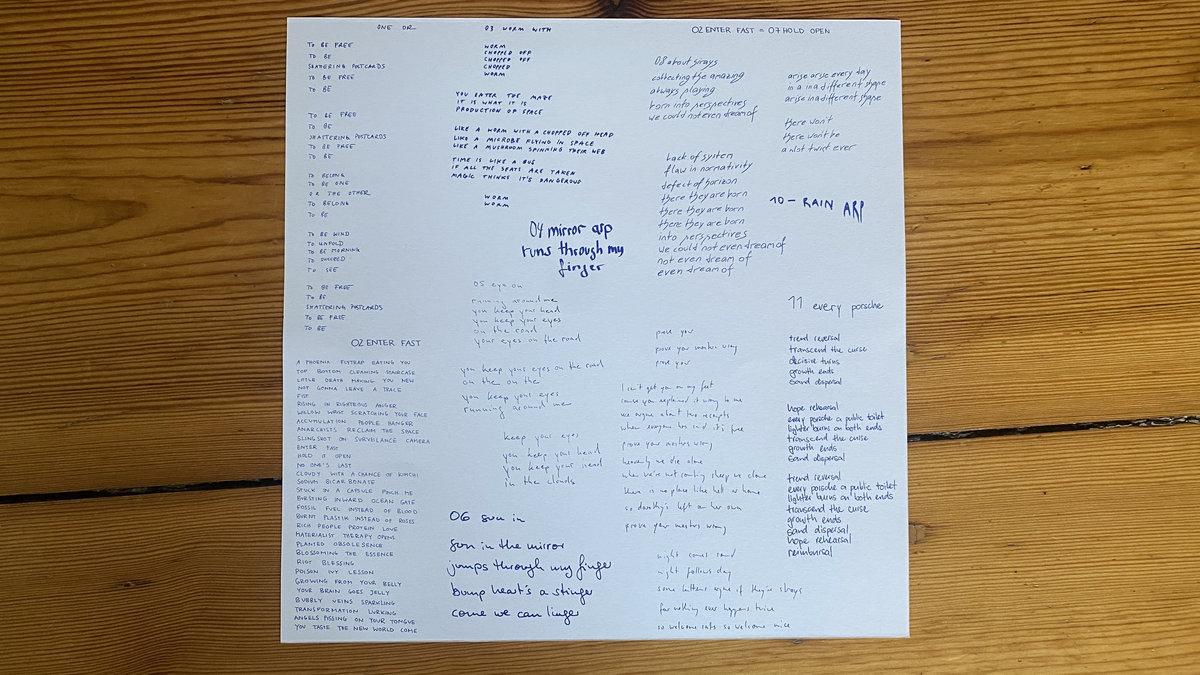 ONE OR
TO BE FREE
TO BE
SHATTERING POSTCARDS
TO BE FREE
TO BE
TO BE FREE
TO BE
SHATTERING POSTCARDS
TO BE FREE
TO BE
TO BELONG
TO BE ONE
OR THE OTHER
TO BELONG
TO BE
TO BE WIND
TO UNFOLD
TO BE MORNING
TO SUCCEED
TO SEE
TO BE FREE
TO BE
SHATTERING POSTCARDS
TO BE FREE
TO BE
02 ENTER FAST
A PHOENIX FLYTRAP EATING YOU
TOP BOTTOM CLEANING STAIRCASE
LITTLE DEATH MAKING YOU NEW
NOT GONNA LEAVE A TRACE
FIST
RISING IN RIGHTEOUS ANGER
WILLOW WRIST SCRATCHING YOUR FACE
ACCUMULATION PEOPLE HANGER
ANARCHISTS RECLAIM THE SPACE
SLINGSHOT ON SURVEILANCE CAMERA
ENTER FAST
HOLD IT OPEN
NO ONE'S LAST
CLOUDY WITH A CHANCE OF KIMCHI
SODIUM BICARBONATE
STUCK IN A CAPSULE PINCH ME
BURSTING INWARD OCEAN GATE
FOSSIL FUEL INSTEAD OF BLOOD
BURNT PLASTIK INSTEAD OF ROSES
RICH PEOPLE PROTEIN LOVE
MATERIALIST THERAPY OPENS
PLANTED OBSOLESENCE
BLOSSOMING THE ESSENCE
RIOT BLESSING
POISON IVY LESSON
GROWING FROM YOUR BELLY
YOUR BRAIN GOES JELLY
BUBBLY VEINS SPARKLING
TRANSFORMATION LURKING
ANGELS PISSING ON YOUR TONGUE
YOU TASTE THE NEW WORLD COME
03 WORM WITH
WORM
CHOPPED OFF
CHOPPED OFF
CHOPPED
WORM
YOU ENTER THE MAZE
IT IS WHAT IT IS
PRODUCTION OF SPACE
LIKE A WORM WITH A CHOPPED OFF HEAD
LIKE A MICROBE FLYING IN SPACE
LIKE A MUSHROOM SPINNING THEIR WEB
TIME IS LIKE A BUG
IF ALL THE SEATS ARE TAKEN
MAGIC THINKS IT'S DANGEROUS
WORM
WORM
04 mirror asp
runs through my
finger
05 eye on
running around me
you keep your head
you keep your eyes
on the road
your eyes on the road
you keep your eyes on the road
on the on the
you keep your eyes
running around me
keep your eyes
you keep your head
you keep your head
in the clouds
06 sun in
sun in the mirror
jumps through my finger
bump heart's a stinger
come we can linger
02 ENTER FAST = 07 HOLD OPEN
08 about strays
collecting the amazing
always playing
born into perspectives
we could not even dream of
Lack of system
flaw in normativity
defect of horizon
there they are born
there they are born
there they are born
into perspectives
we could not even dream of
not even dream of
even dream of
prove your
prove your masters wrong
prove your
I can't get you on my feet
cause you explained it wrong to me
we argue about two receipts
when everyone has said it's free
prove your masters wrong
heavenly we die alone
when we're not counting sheep we clone
there is no place like hell or home
so dorothy's left on her own
prove your masters wrong
night comes and
night follows day
some letters argue if they're strays
for nothing ever happens twice
so welcome rats so welcome mice
arise arise every day
in a in a different shape
arise in a different shape
there won't
there won't be
a plot twist ever
10 - RAIN ARP
11 every porsche
trend reversal
transcend the curse
decisive turns
growth ends
sand dispersal
hope rehearsal
every porsche a public toilet
lighter burns on both ends
transcend the curse
growth ends
sand dispersal
trend reversal
every porsche a public toilet
lighter burns on both ends
transcend the curse
growth ends
sand dispersal
hope rehearsal
reimbursal